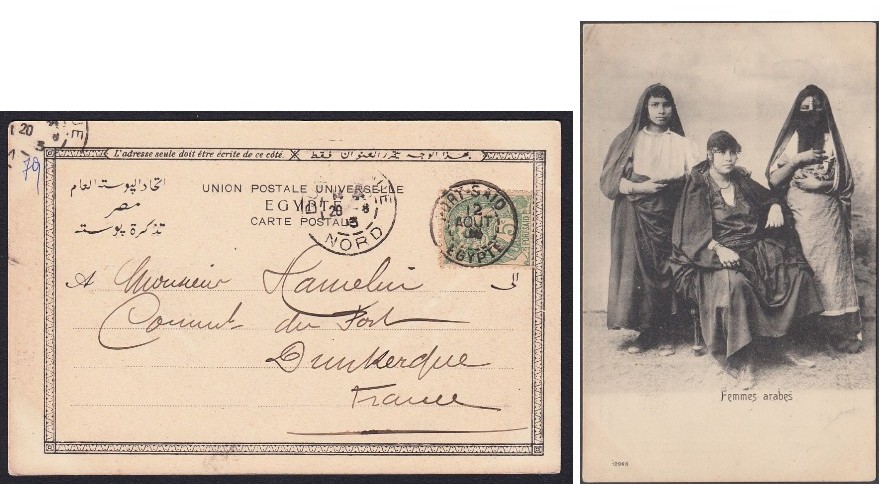 L'adresse seule doit être écrite de ce côté.
بهذا الوجه يحرر العنوان فقط
79
اتحاد البوسته العام
مصر
تذكرة بوسته
UNION POSTALE UNIVERSELLE
EGYPTE
CARTE POSTALE
NORD
PORT-SAID
2
AOUT
EGYPTE
A Monsieur Hamelin
الى
Commt du Port
Dunkerque
France
Femmes arabes